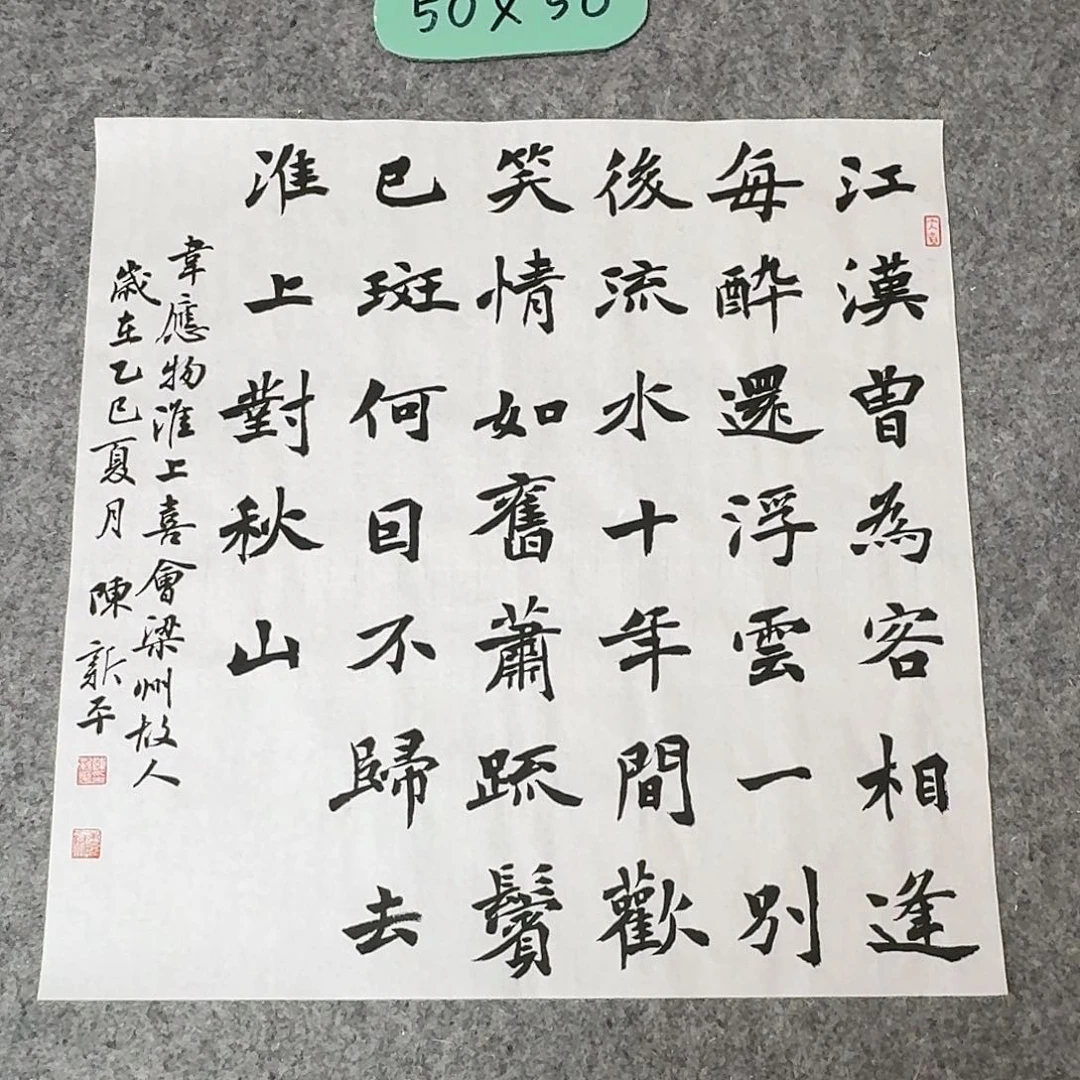 50×50
江漢曾為客相逢
每醉還浮雲一別
後流水十年間歡
笑情如舊蕭疏鬢
已斑何日不歸去
淮上對秋山
韋應物淮上喜會梁州故人
歲在乙巳夏月 陳新平